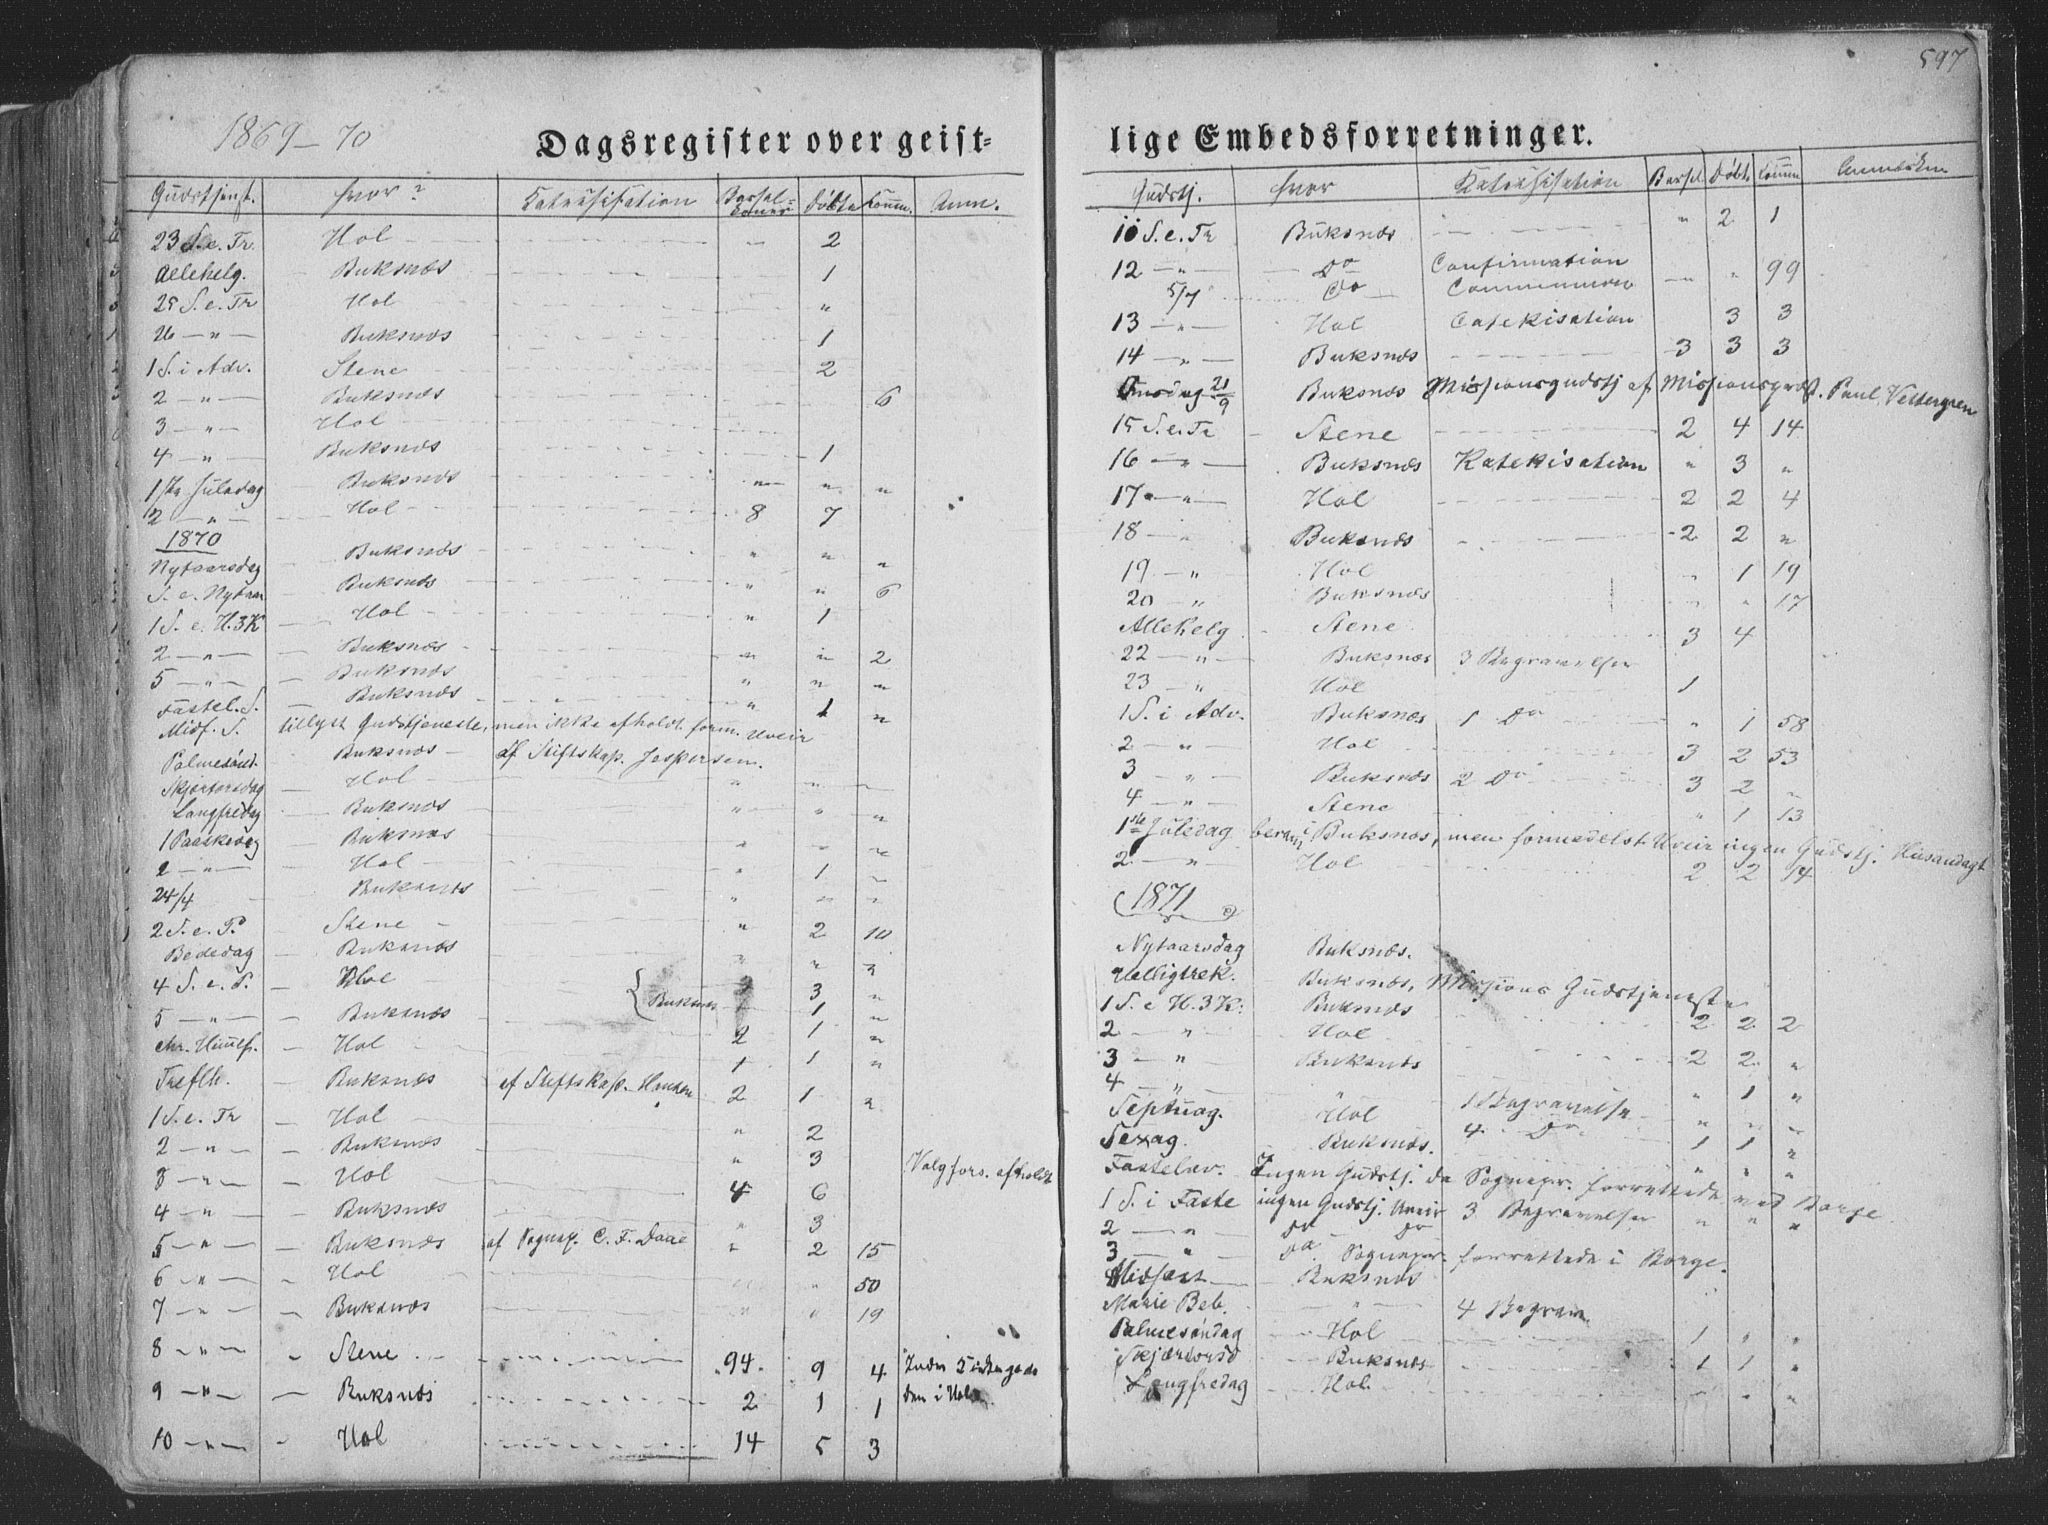 597
1869-70
Dagsregister over geist-
lige Embedsforretninger.
Gudstjenst. Hvor? Katechisation Barsel-koner Døbte Comm. Anm.
23 S. e. Tr. Hol 2
Allehelg. Buksnæs 1
25 S. e. Tr Hol "
26 — " — Buksnæs 1
1 S. i Adv. Stene 2
2 — " — Buksnæs 6
3 — " — Hol
4 — " — Buksnæs 1
1ste Juledag Buksnæs " " "
2 — " — Hol 8 7
1870
Nytaarsdag Buksnæs " " "
S. e. Nytaar Buksnæs " " 6
1 S. e. H.3K Hol " 1
2 — " — Buksnæs " " 2
5 — " — Buksnæs " " "
Fastel. S. Buksnæs " 1 "
Midf. S. tillyst Gudstjeneste, men ikke afholdt form. Uveir
Palmesønd. Buksnæs af Stiftskap. Jespersen.
Skjærtorsdag Hol " "
Langfredag Buksnæs " " "
1 Paaskedag Buksnæs " "
2 — " — Hol " 1
24/4 Buksnæs "
2 S. e. P. Stene " 2 10
Bededag Buksnæs " " "
4 S. e. P. Hol 3 "
5 — " — Buksnæs { Buksnæs 1 "
Chr. Himlf. Hol 2 1 "
1 1 "
Treflh. Buksnæs af Stiftskap. Hansen 2 1 "
1 S. e. Tr Hol " 2
2 — " — Buksnæs " 3
3 — " — Hol 4 6 Valgfors. afholdt
4 — " — Buksnæs " 3
5 — " — Buksnæs af Sognep. C. F. Daae " 2 15
6 — " — Hol " 50
7 — " — Buksnæs " " 19
8 — " — Stene 94. 9 4
9 — " — Buksnæs 2 1 1 den i Hol
10 — " — Hol 14 5 3
Gudstj. Hvor Katechisation Barsel. Døbt. Comm. Anmærkn
10 S. e. Tr Buksnæs " 2 1
12 — " — Do Confirmation " 99
5/7 Do Communion
13 — " — Hol Catekisation 3 3
14 — " — Buksnæs 3 3 3
Onsdag 21/9 Buksnæs Missionsgudstj af Missionspræst. Paul Vettergren
15 S. e. Tr Stene 2 4 14
16 — " — Buksnæs Katekisation " 3 "
17 — " — Hol 2 2 4
18 — " Buksnæs 2 2 "
19 — " Hol " 1 19
20 — " Buksnæs " " 17
Allehelg Stene 3 4
22 — " — Buksnæs 3 Begravelser
23 — " Hol 1
1 S. i Adv. Buksnæs 1 Do " 1 58
2 — " Hol 3 2 53
3 — " Buksnæs 2 Do 3 2 "
4 — " — Stene " 1 13
1ste Juledag beram i Buksnæs, men formedelst Uveir ingen Gudstj. Husandagt
2 — " Hol 2 2 14
1871
Nytaarsdag Buksnæs.
Helligtrek. Buksnæs, Missions Gudstjeneste
1 S. e H. 3K: Buksnæs
2 — " Hol 2 2 2
3 — " Buksnæs 2 2 "
4 — " — " 1 "
Septuag. Hol 1 Begravelse " " "
Sexag. Buksnæs. 4 Do 1 1 "
Fastelav. Ingen Gudstj. da Sognepr. forrettede ved Borge
1 S. i Faste ingen Gudstj. Uveir 3 Begravelser " " "
2 — " Do Do
3 — " Do Sognepr. forrettede i Borge.
Midfast Buksnæs
Marie Beb. " 4 Begrav.
Palmesøndag Hol 1 " "
Skjærtorsd Buksnæs 1 1 "
Langfredag Hol " "